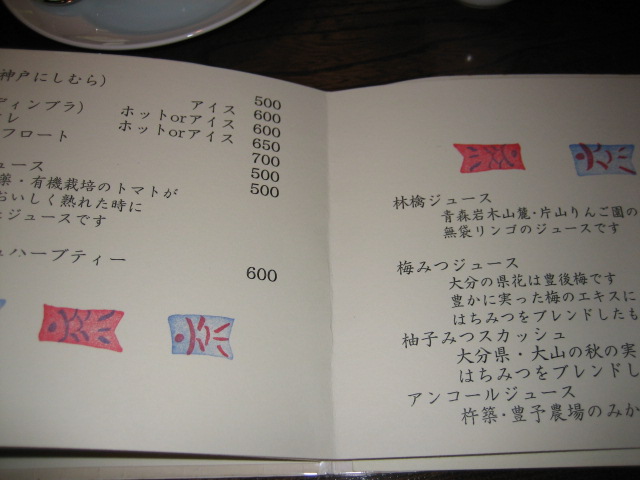 神戸にしむら）
アイス 500
ディンブラ） ホットorアイス 600
レ ホットorアイス 600
フロート 650
700
ュース 500
薬・有機栽培のトマトが 500
おいしく熟れた時に
ジュースです
ハーブティー
600
林檎ジュース
青森岩木山麓・片山りんご園の
無袋リンゴのジュースです
梅みつジュース
大分の県花は豊後梅です
豊かに実った梅のエキスに
はちみつをブレンドしたも
柚子みつスカッシュ
大分県・大山の秋の実
はちみつをブレンドし
アンコールジュース
杵築・豊予農場のみか